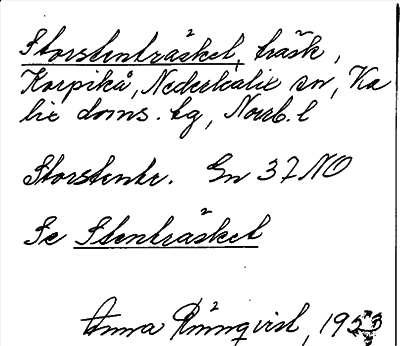 Storstenträsket, träsk,
Korpikå, Nederkalix sn, Ka
lix doms. tg, Norrb. l
Storstentr. Gn 37 NO
Se Stenträsket
Anna Rönnqvist, 1933